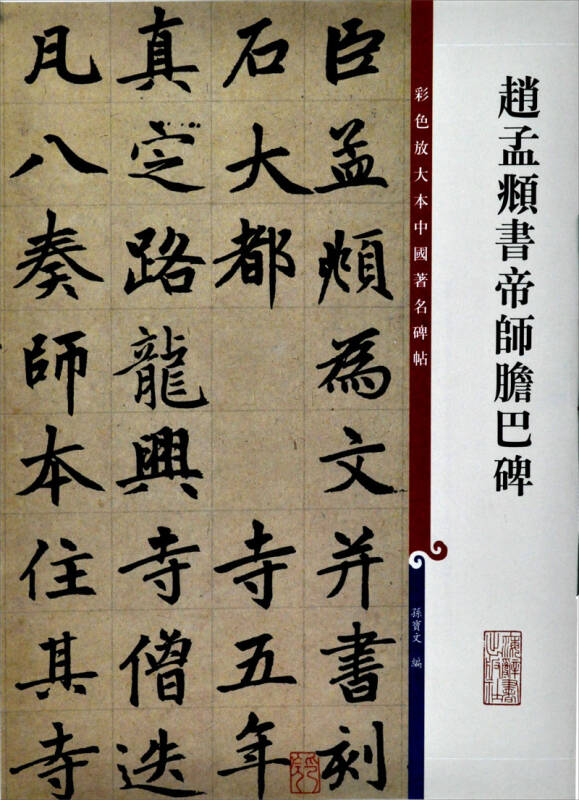 趙孟頫書帝師膽巴碑
彩色放大本中國著名碑帖
孫寶文 編
海辭書出版社
臣孟頫為文并書刻
石大都 寺五年
真定路龍興寺僧迭
凡八奏師本住其寺